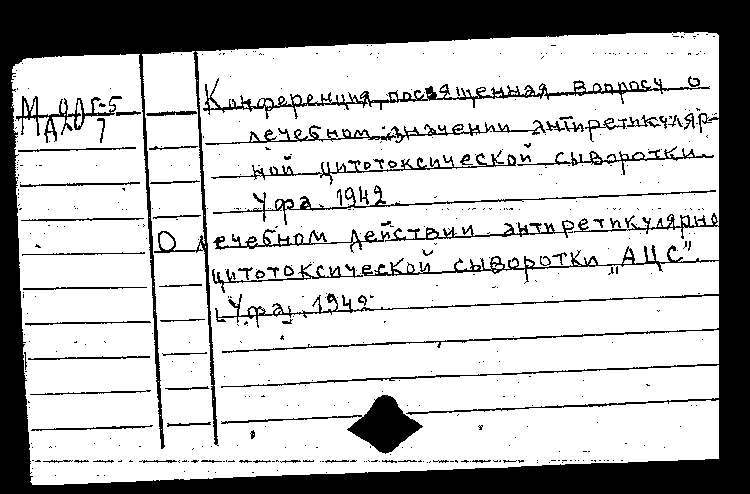 Конференция, посвященная вопросу о
лечебном значении антиретикуляр-
ной цитотоксической сыворотки.
Уфа. 1942
О лечебном действии антиретикулярно
цитотоксической сыворотки „АЦС".
Уфа, 1942.